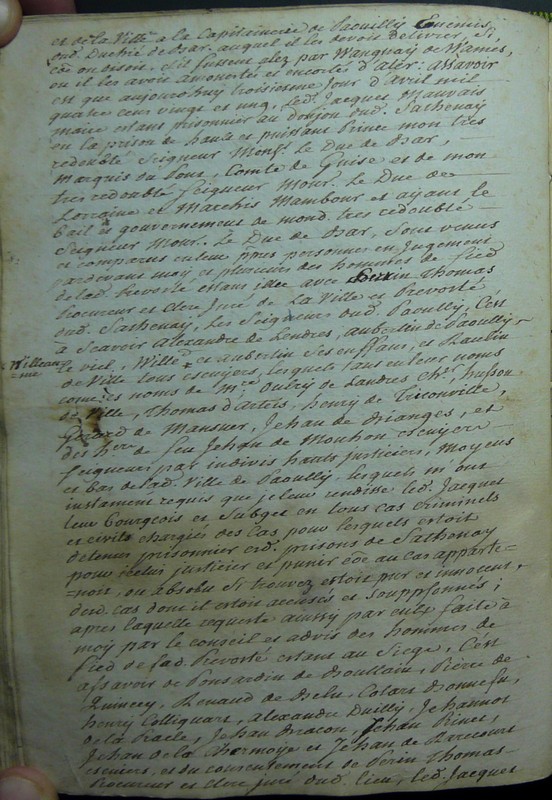 et de la Ville a la Capitainerie de Paouilly Ennemis,
oud. Duchié de Bar. auquel il les devoit delivrer, Si
côe on disoit. S'il fussent alez par Wauquay de Wames,
ou il les avoit amonestez et encortés d'aler: Assavoir
est que aujourd'huy troisieme Jour d'avril mil
quatre cens vingt et ung, led. Jacques Mauvais
maire estans prisonnier au donjon oud. Sathenay
en la prison de hault et puissant Prince mon tres
redoubté Seigneur Mons. Le Duc de Bar,
Marquis du Pont, Comte de Guise et de mon
tres redoubté Seigneur Mons. Le Duc de
Lorraine et Marchis Mambour et ayant le
bail et gouvernement de mond. tres redoubté
Seigneur Mons. Le Duc de Bar, Sont venus
et comparus en leurs ppres personnes en Jugement
pardevant moy et plusieurs des hommes de fied
de lad. Prevosté estans illec avec Perrin Thomas
Procureur et Clerc Juré de La Ville et Prevosté
oud. Sathenay, Les Seigneurs oud. Paouilly, C'est
à Scavoir Alexandre de Landres, aubertin de Paouilly
le viel, Willé et aubertin ses enffans, et Raulin
Willeau=
=me
de Ville tous escuyers, lesquels tant en leur noms
come es noms de Mre. Oulry de Landres Chr. husson
de Ville, Thomas d'artois, henry de Ticonville,
Gerard de Mansuer, Jehan de Brianges, et
des hers. de feu Jehan de Mouhon escuyers
seigneurs par indivis hauts justiciers, Moyens
et bas de lad. Ville de Paouilly, lesquels m'ont
instament requis que je leur rendisse led. Jacques
leur Bourgeois et Subget en tous cas criminels
et civils chargiés des cas pour lesquels estoit
detenus prisonnier esd. prisons de Sathenay
pour icelui justicier et punir côe au cas apparte=
=noit, ou absolu si trouvez estoit pur et innocent,
desd. cas dont il estoit accusés et souppsonnés;
apres laquelle requeste ainssy par eulx faite à
moy par le conseil et advis des hommes de
fied de lad. Prevosté estans au Siege, C'est
assavoir de Ponsardin de Boullain, Pierre de
Quincey, Renaud de Belu, Colart
henry Colliquart, alexandre Duilly, Jehannot
de la Racle, Jehan Bracon, Jehan
Jehan de la Hermoye et Jehan de
escuiers, et du consentement de Perin Thomas
Procureur et Clerc juré oud. lieu, led. Jacques